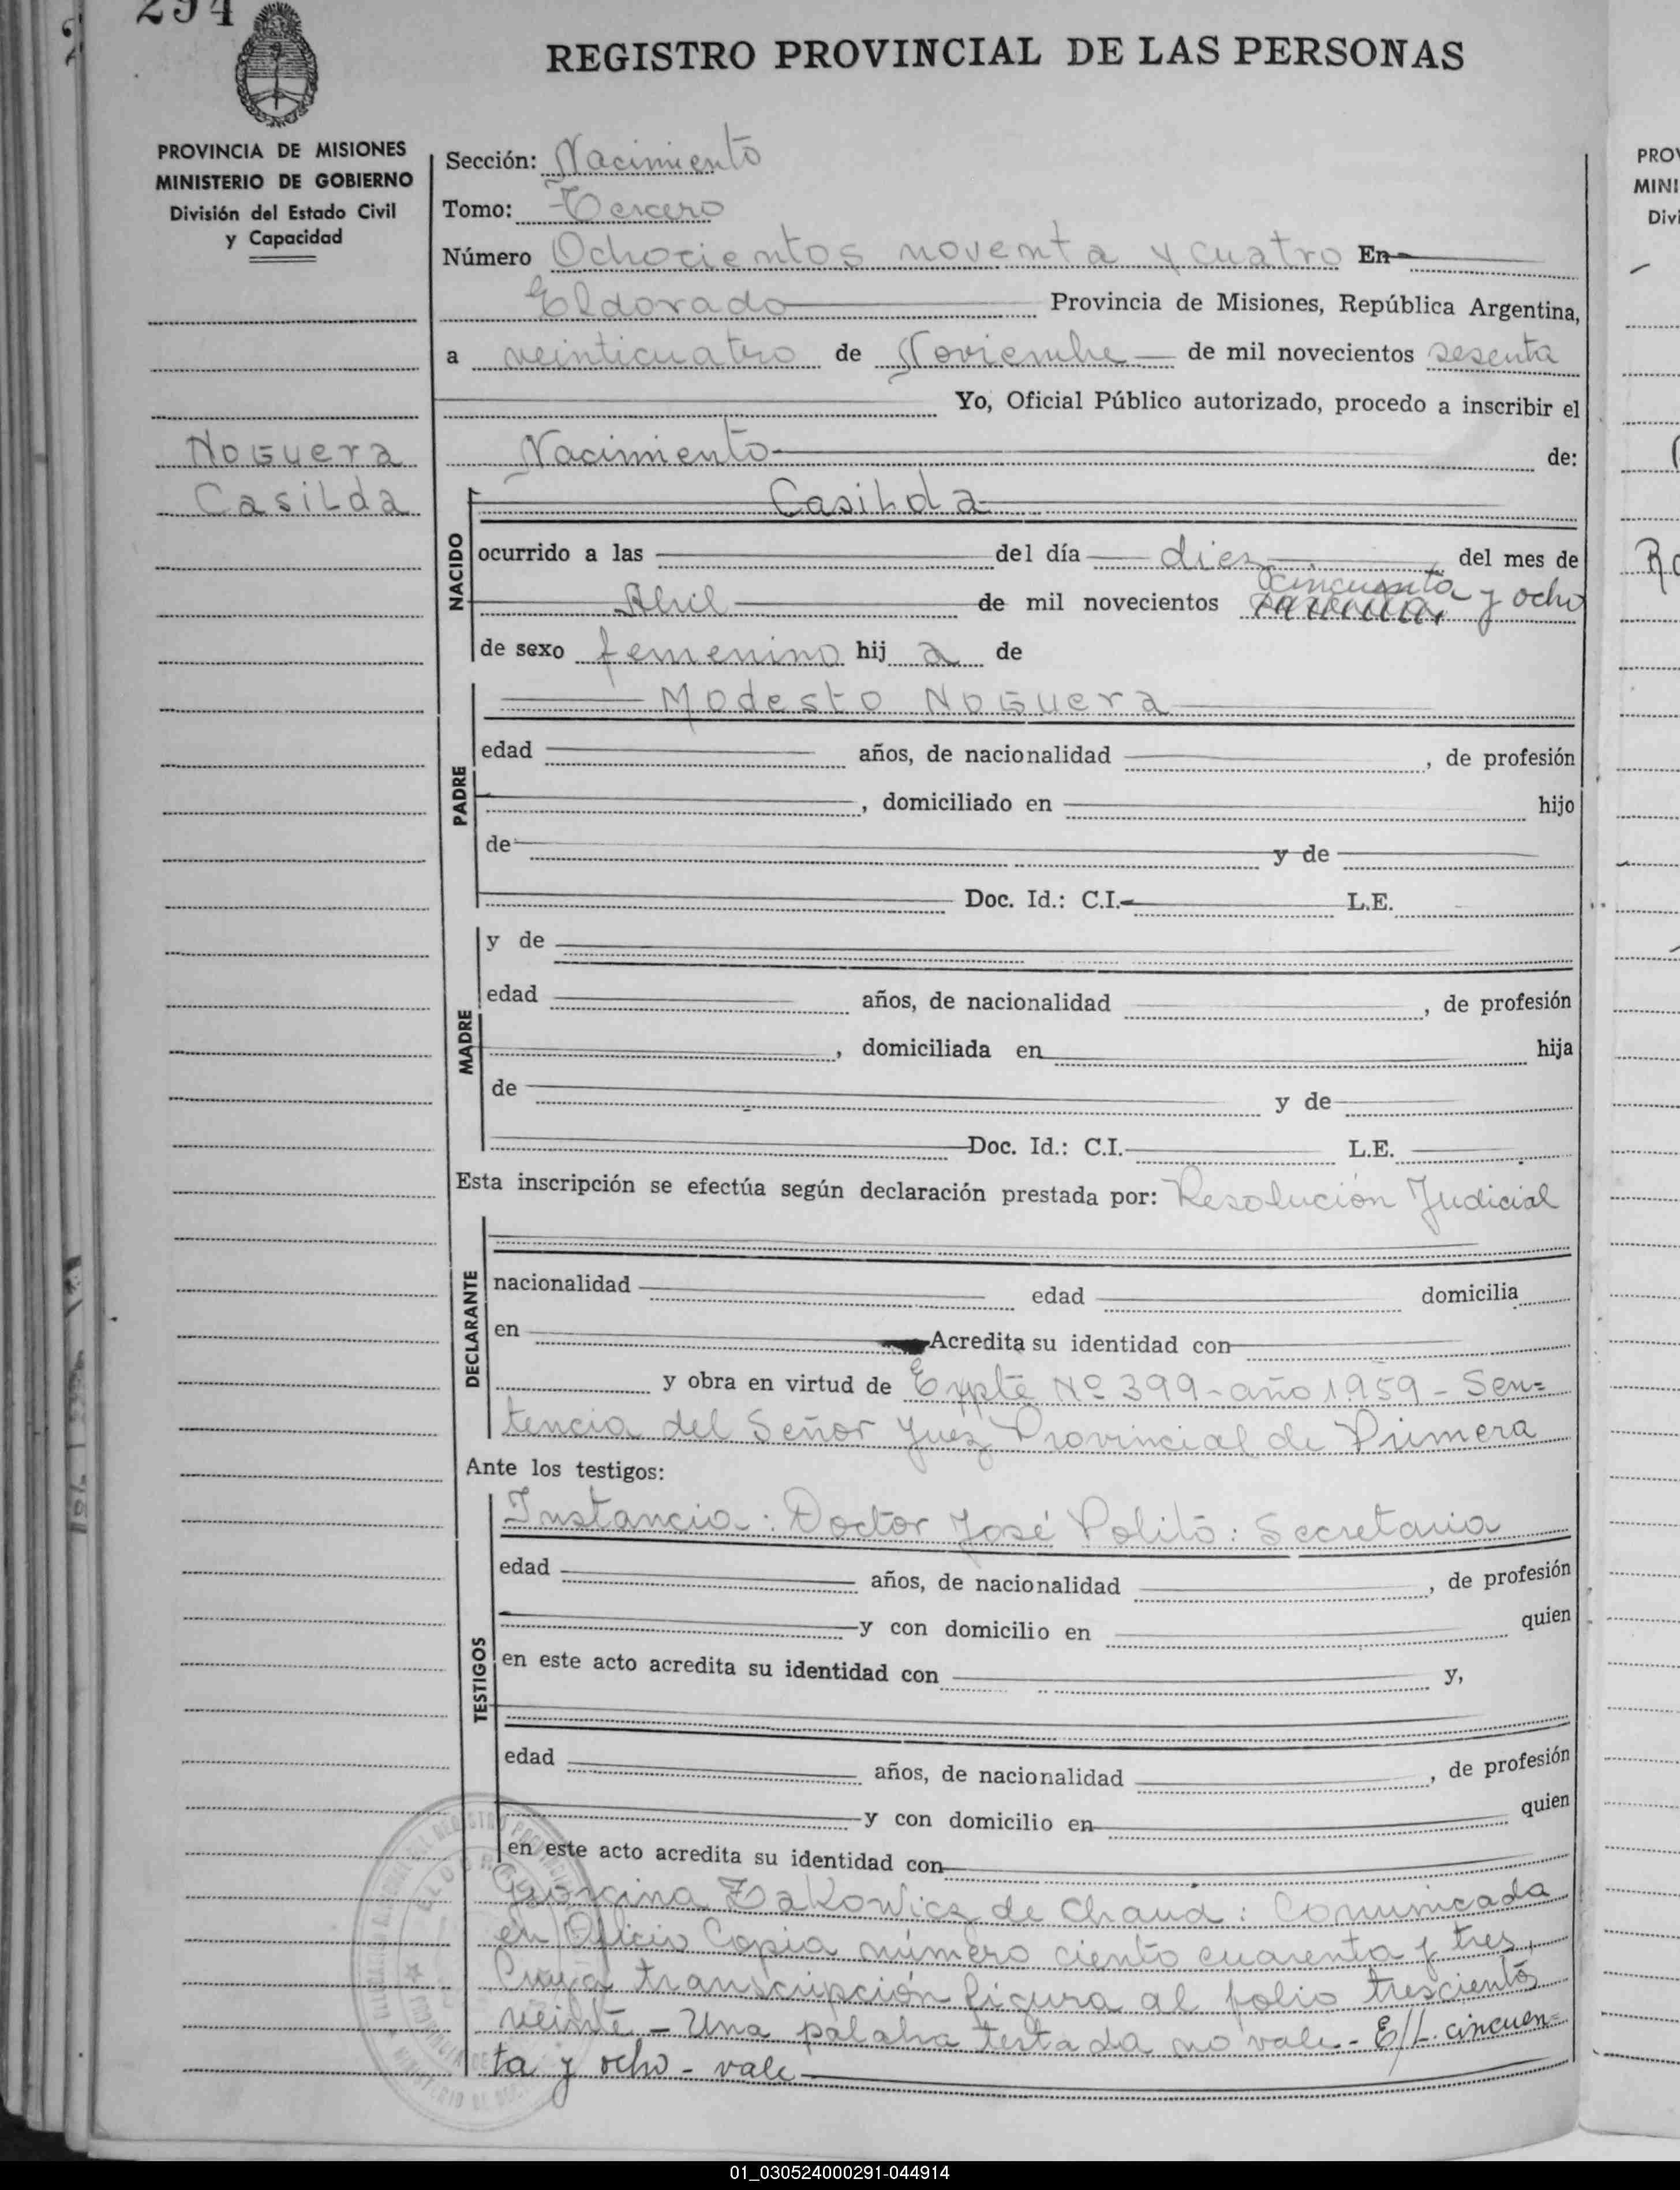 294
REGISTRO PROVINCIAL DE LAS PERSONAS
PROVINCIA DE MISIONES
MINISTERIO DE GOBIERNO
División del Estado Civil
y Capacidad
Noguera
Casilda
Sección: Nacimiento
Tomo: Tercero
Número Ochocientos noventa y cuatro En
Eldorado Provincia de Misiones, República Argentina,
a veinticuatro de Noviembre de mil novecientos sesenta
Yo, Oficial Público autorizado, procedo a inscribir el
Nacimiento de:
NACIDO
Casilda
ocurrido a las del día diez del mes de
cincuenta y ocho
Abril de mil novecientos
de sexo femenino hij a de
PADRE
Modesto Noguera
edad años, de nacionalidad , de profesión
, domiciliado en hijo
de y de
Doc. Id.: C.I. L.E.
MADRE
y de
edad años, de nacionalidad , de profesión
, domiciliada en hija
de y de
Doc. Id.: C.I. L.E.
Esta inscripción se efectúa según declaración prestada por: Resolución Judicial
DECLARANTE
nacionalidad edad domicilia
en Acredita su identidad con
y obra en virtud de Expte Nº 399-año 1959 - Sen=
tencia del Señor Juez Provincial de Primera
Ante los testigos:
TESTIGOS
Instancia: Doctor José Polito: Secretaria
edad años, de nacionalidad , de profesión
y con domicilio en quien
en este acto acredita su identidad con y,
edad años, de nacionalidad , de profesión
y con domicilio en quien
en este acto acredita su identidad con
Zakowicz de Chaud: Comunicada
en Oficio Copia número ciento cuarenta y tres,
Cuya transcripción figura al folio trescientos
veinte - Una palabra testada no vale - E/L. cincuen=
ta y ocho - vale
PROV
MINI
Divi
01_030524000291-044914